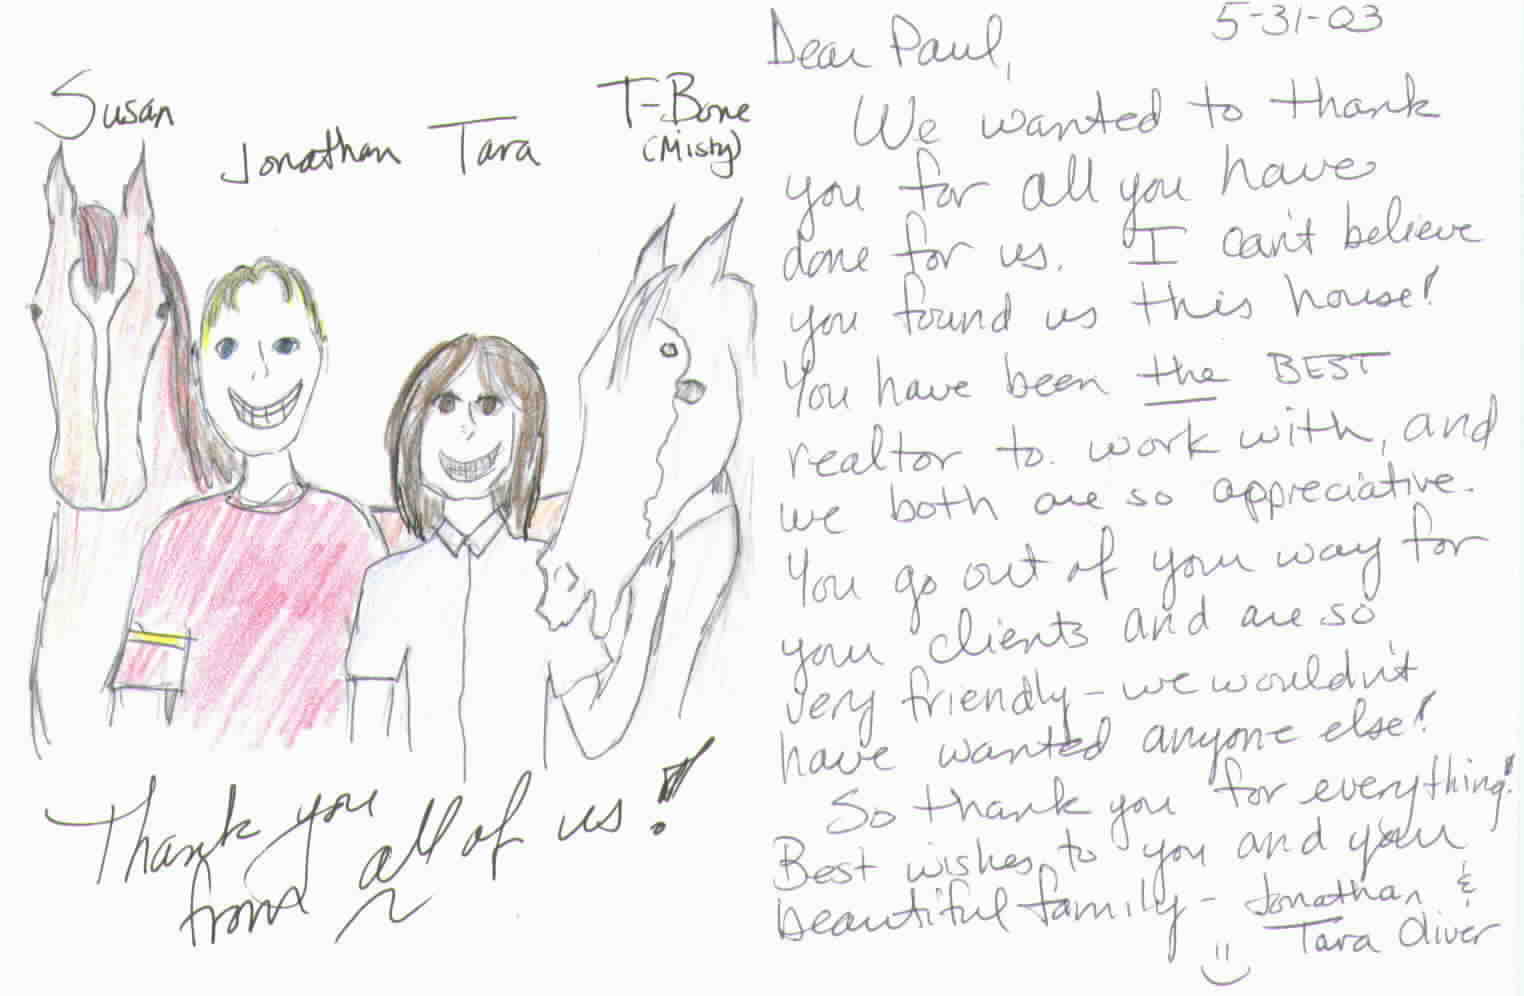 Susan
Jonathan
Tara
T-Bone
(Misty)
Thank you
from all of us!
5-31-03
Dear Paul,
We wanted to thank
you for all you have
done for us. I can't believe
you found us this house!
You have been the BEST
realtor to work with, and
we both are so appreciative.
You go out of your way for
your clients and are so
very friendly - we wouldn't
have wanted anyone else!
So thank you for everything!
Best wishes to you and your
beautiful family - Jonathan &
Tara Oliver